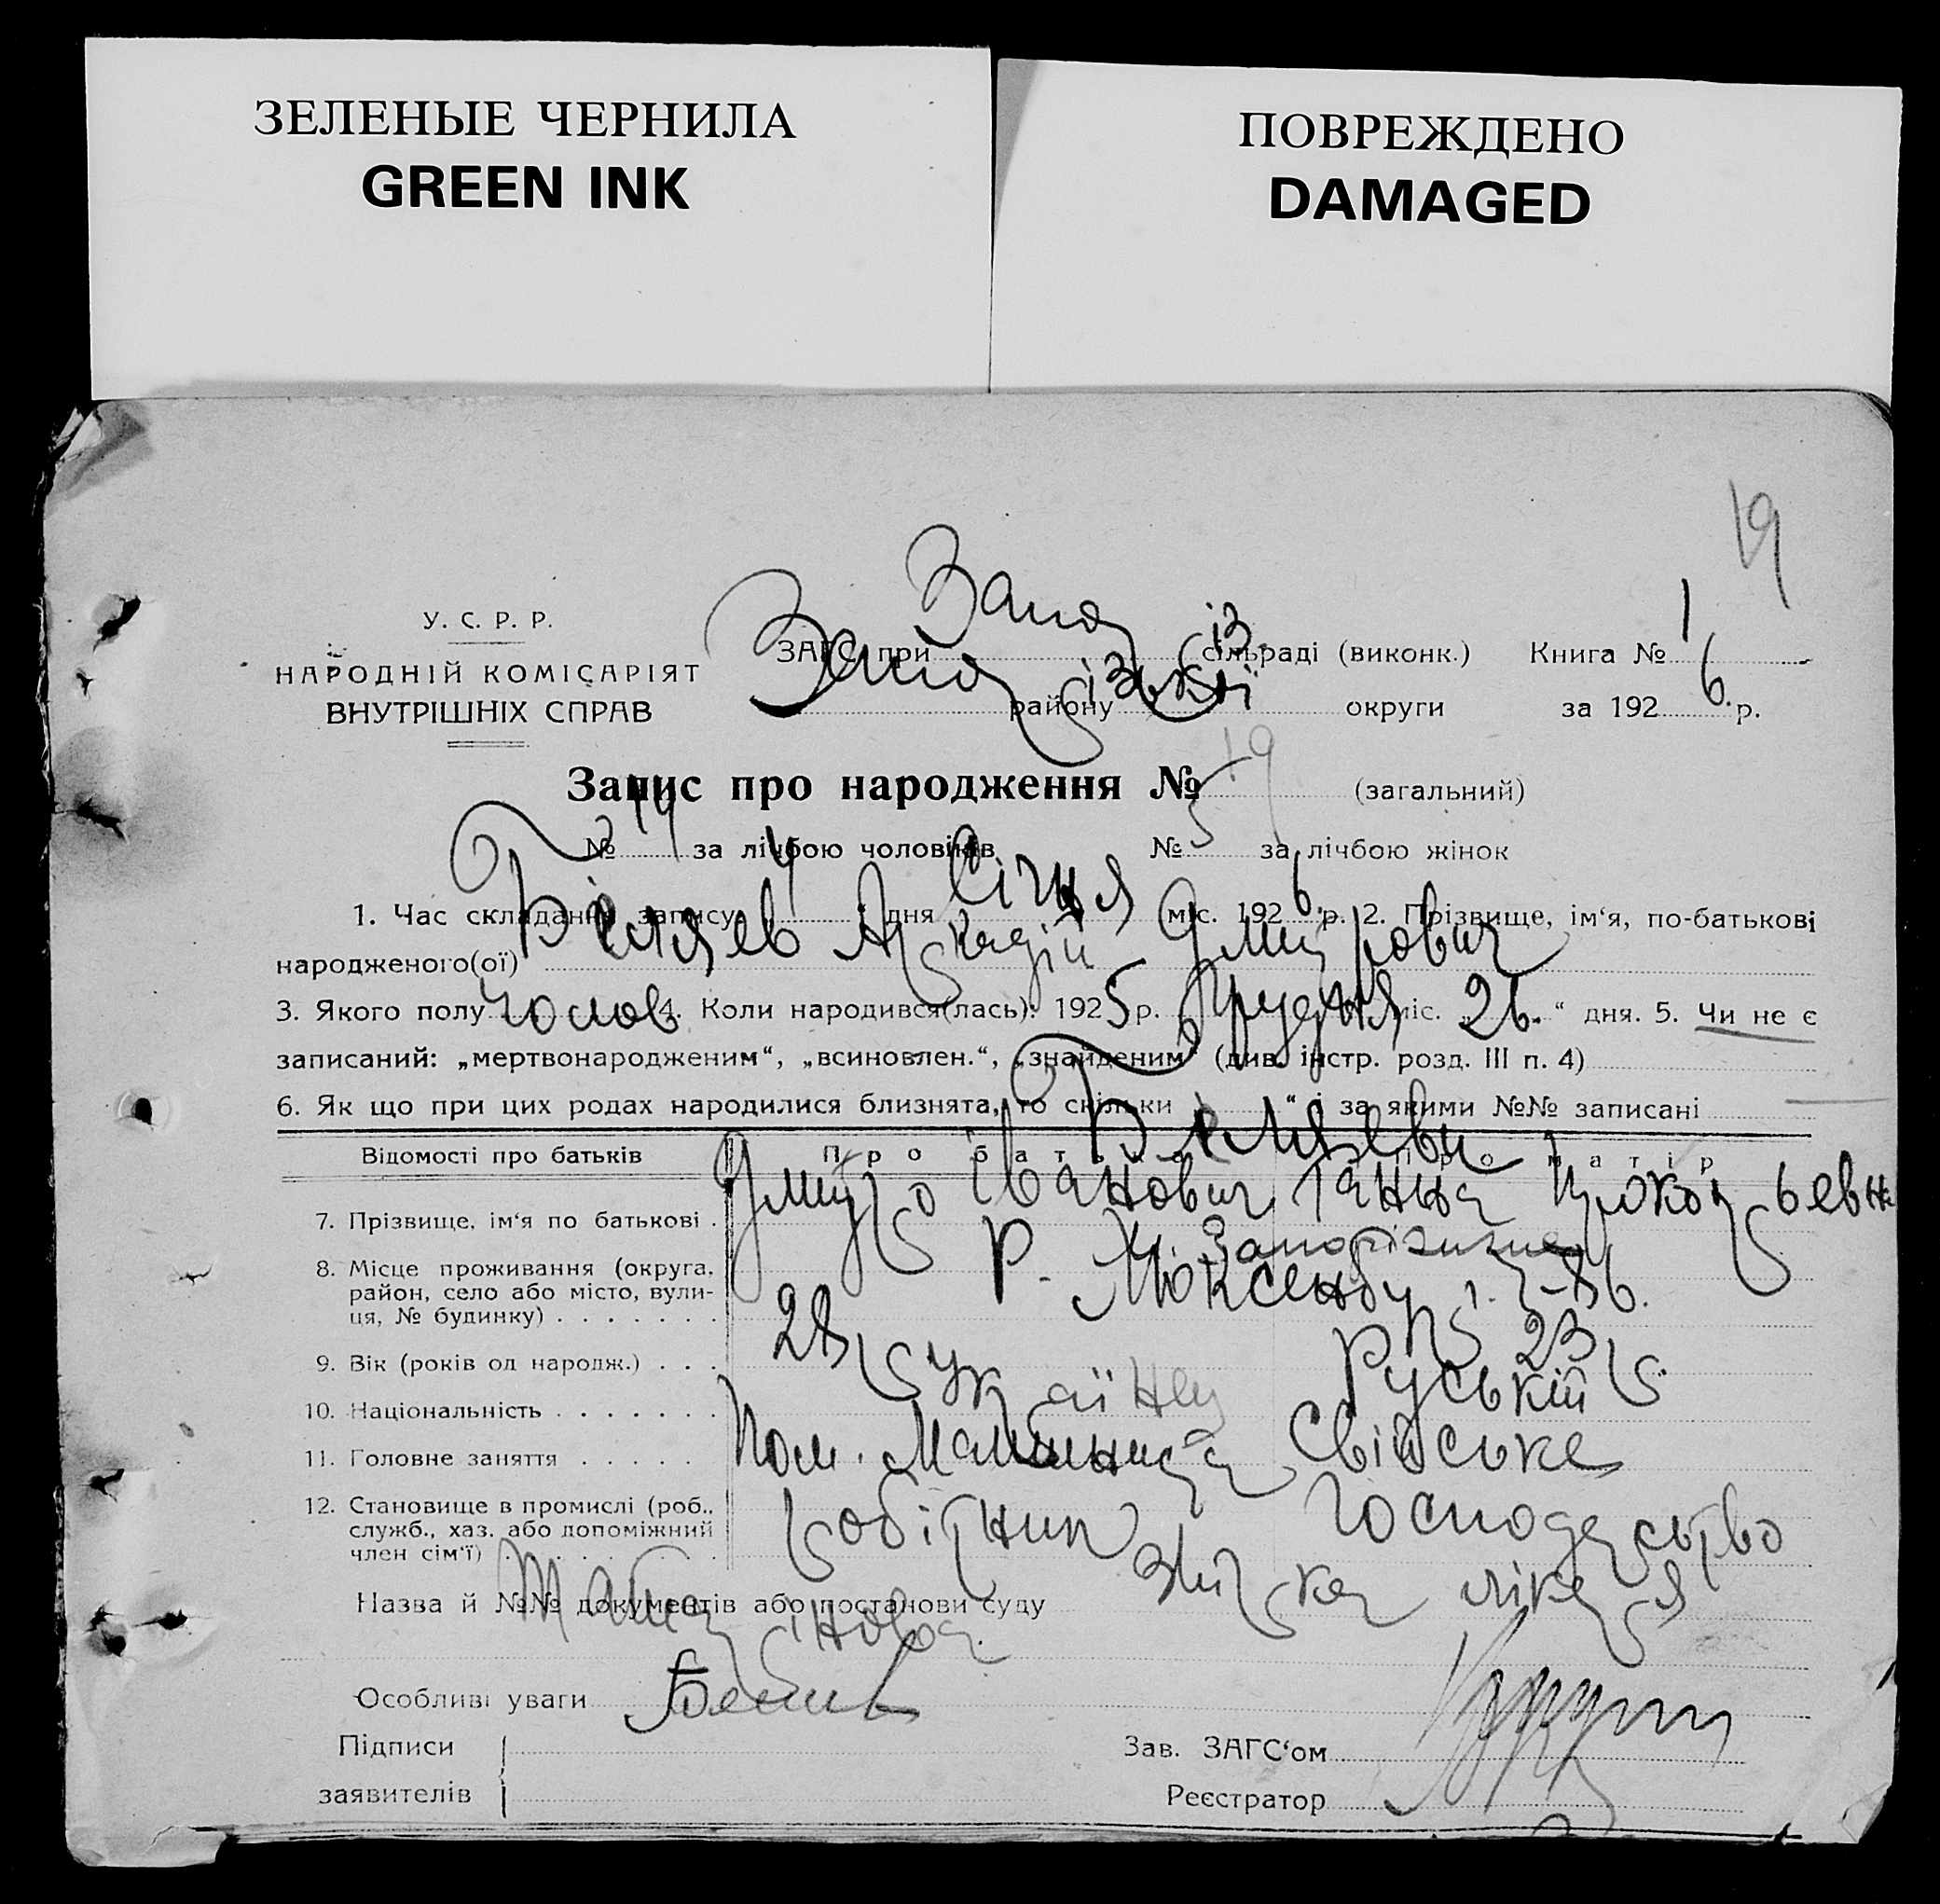 ЗЕЛЕНЫЕ ЧЕРНИЛА
GREEN INK
ПОВРЕЖДЕНО
DAMAGED
19
У. С. Р. Р.
НАРОДНІЙ КОМІСАРІЯТ
ВНУТРІШНІХ СПРАВ
ЗАГС при Запоріз. сільраді (виконк.) Книга № 1
району округи за 1926 р.
Запис про народження № 19 (загальний)
№ 14 за лічбою чоловіків № 5 за лічбою жінок
1. Час складання запису „ 4 “ дня Січня міс. 1926 р. 2. Прізвище, ім‘я, по-батькові
народженого(ої) Біляєв Аркадій Дмитрович
3. Якого полу чолов 4. Коли народився(лась): 1925 р. Грудня міс. „ 26. “ дня. 5. Чи не є
записаний: „мертвонародженим“, „всиновлен.“, „знайденим“ (див. інстр. розд. III п. 4)
6. Як що при цих родах народилися близнята, то скільки „ “ і за якими №№ записані
Відомості про батьків Про батька Про матір
Біляєви
7. Прізвище, ім‘я по батькові Дмитро Іванович Ганна Прокопьевна
8. Місце проживання (округа, район, село або місто, вулиця, № будинку) м. Запоріжжя
Р. Люксенбург
9. Вік (років од народж.) 28 р. 23 р.
10. Національність українец Руській
11. Головне заняття Пом. Машиніста Свійське
12. Становище в промислі (роб., служб., хаз. або допоміжний член сім‘ї) робітник господарство
Назва й №№ документів або постанови суду лікаря
Особливі уваги
Підписи
заявителів
Зав. ЗАГС‘ом
Реєстратор